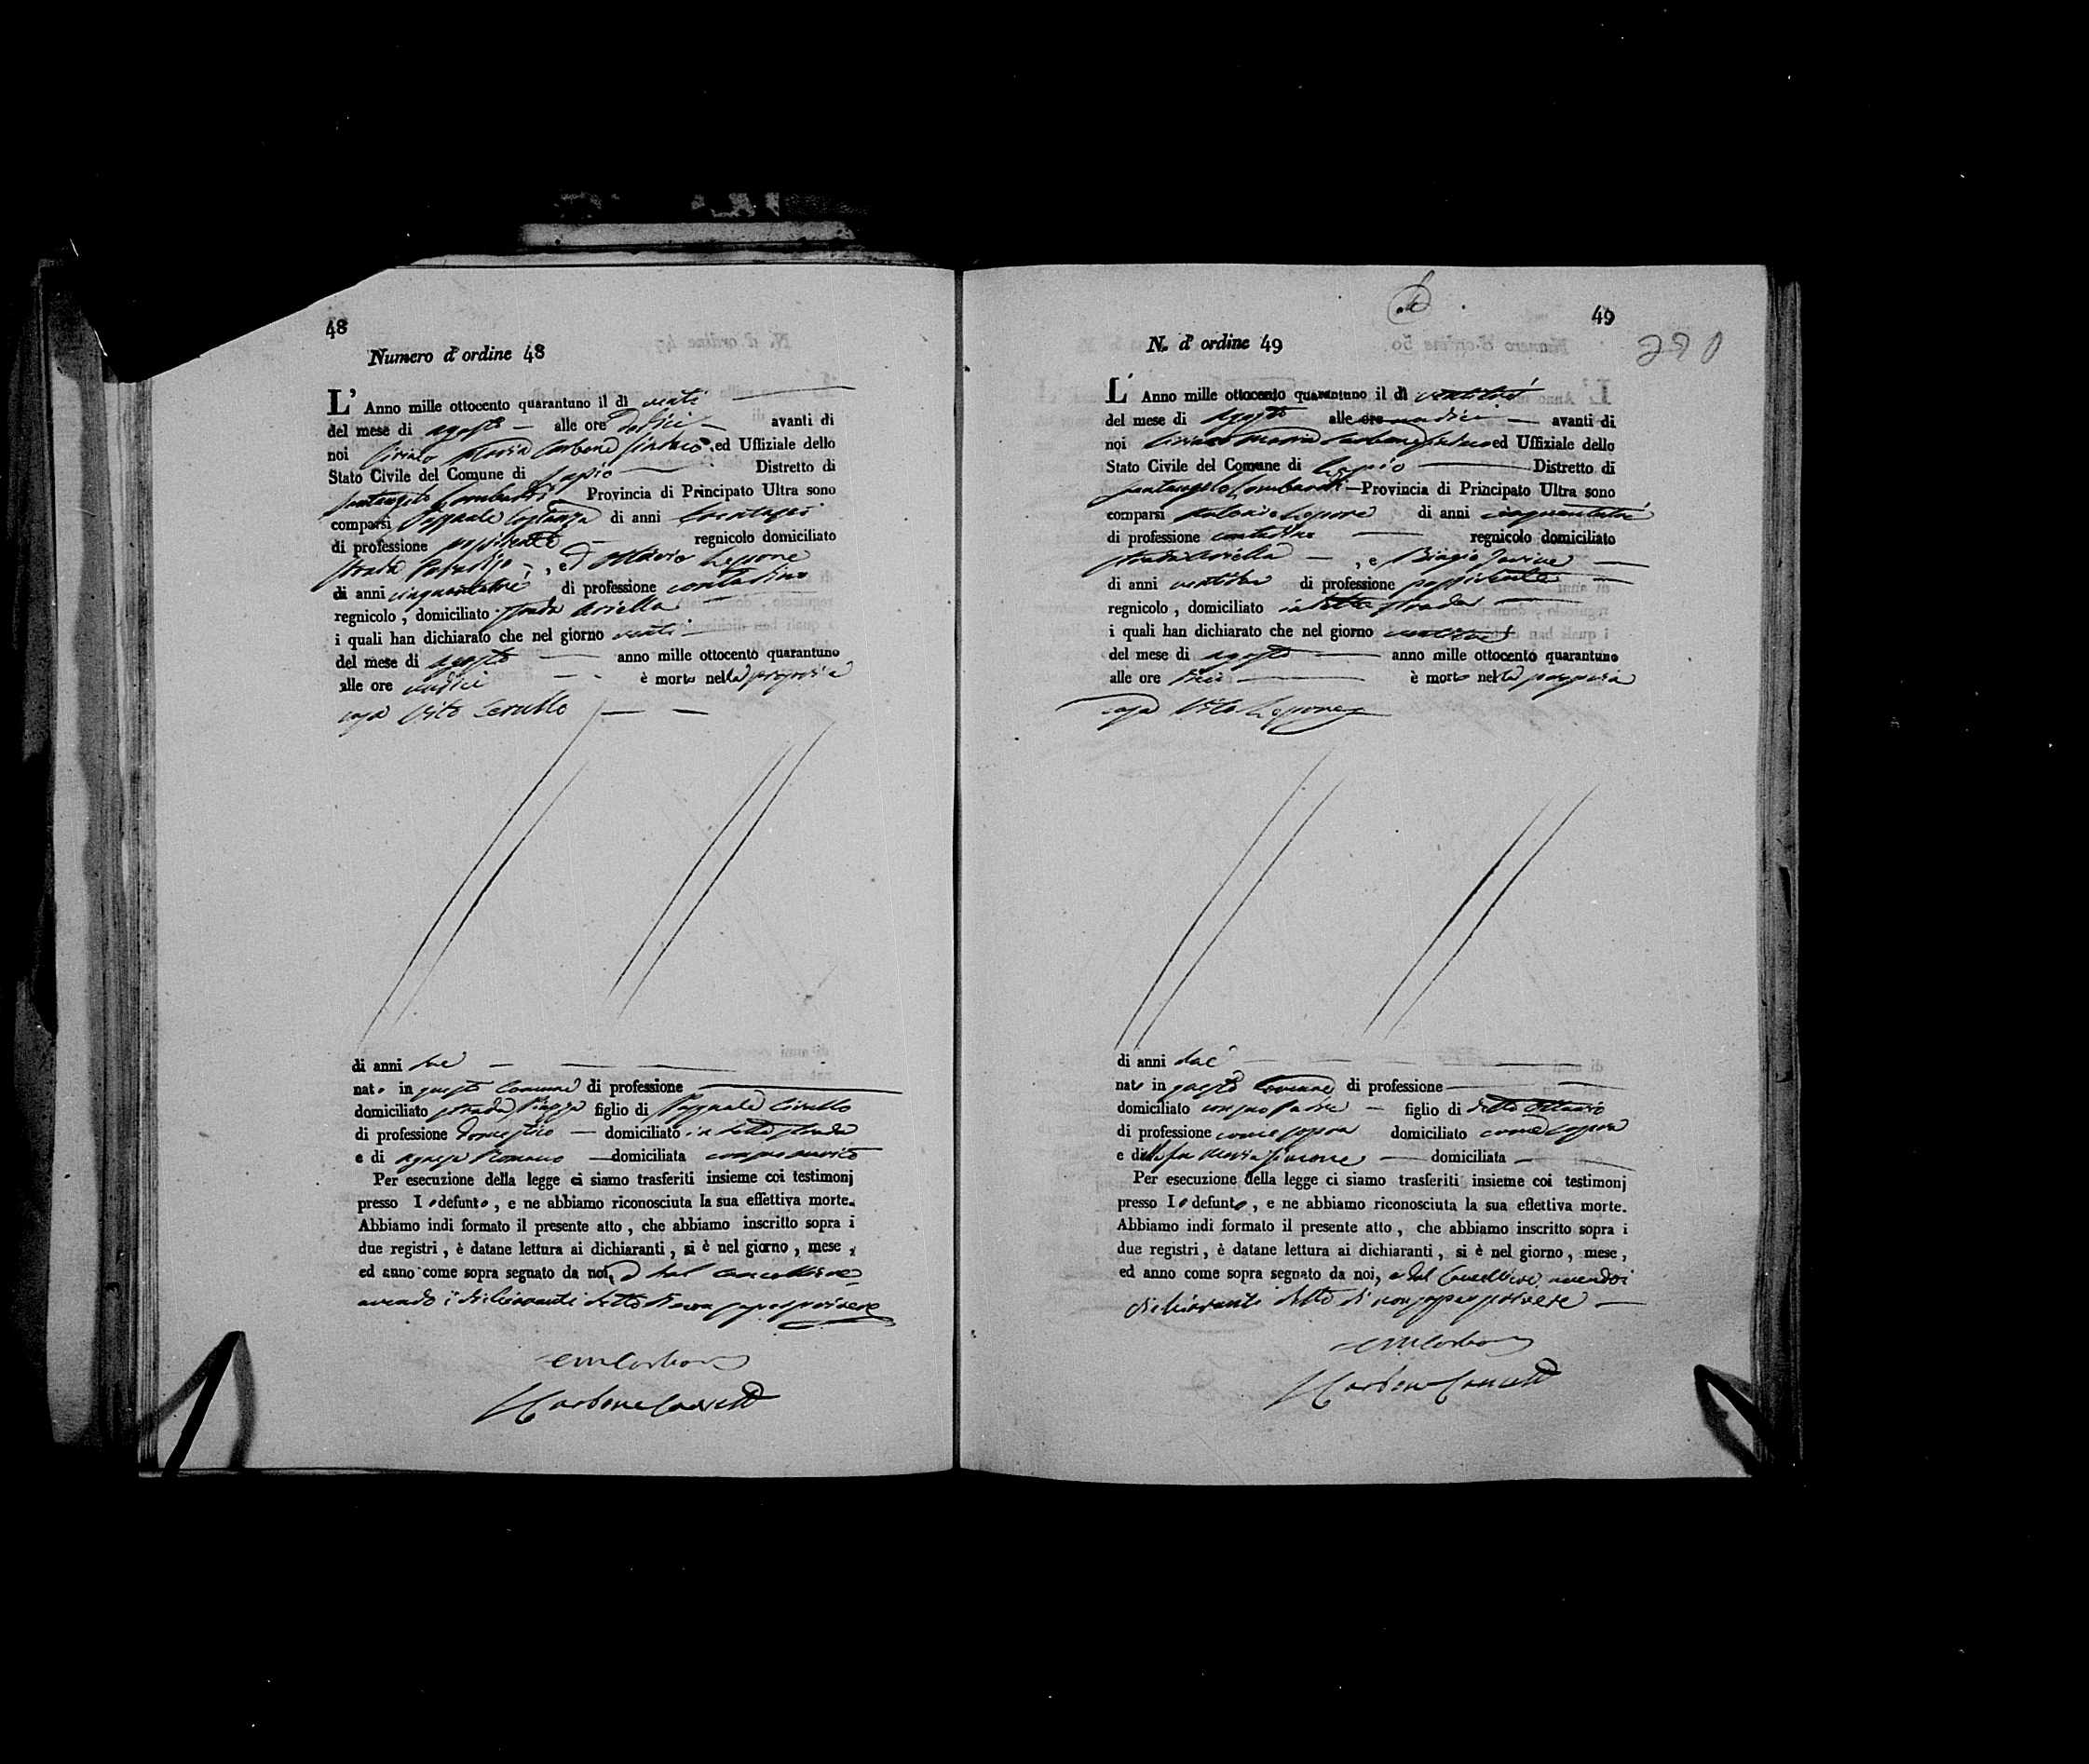 48
Numero d'ordine 48
L' Anno mille ottocento quarantuno il dì venti
del mese di agosto alle ore dodici avanti di
noi Ciriaco Maria Carbone Sindaco ed Uffiziale dello
Stato Civile del Comune di Lapio Distretto di
Santangelo Lombardi Provincia di Principato Ultra sono
comparsi Pasquale Costanza di anni
di professione possidente regnicolo domiciliato
strada , ed Ottavio Lepore
di anni cinquantatré di professione contadino
regnicolo, domiciliato strada Ariella
i quali han dichiarato che nel giorno venti
del mese di agosto anno mille ottocento quarantuno
alle ore undici è morto nella propria
casa Vito Cerullo
di anni due
nato in questo Comune di professione
domiciliato strada Piazza figlio di Pasquale Cerullo
di professione domestico domiciliato in detta strada
e di Agnese Romano domiciliata con suo marito
Per esecuzione della legge ci siamo trasferiti insieme coi testimonj
presso lo defunto, e ne abbiamo riconosciuta la sua effettiva morte.
Abbiamo indi formato il presente atto, che abbiamo inscritto sopra i
due registri, è datane lettura ai dichiaranti, si è nel giorno, mese,
ed anno come sopra segnato da noi, e dal Cancelliere
avendo i dichiaranti detto di non saper scrivere
CMCarbone
Carbone Cancell
49
N. d' ordine 49
L' Anno mille ottocento quarantuno il dì ventitré
del mese di agosto alle ore undici avanti di
noi Ciriaco Maria Carbone Sindaco ed Uffiziale dello
Stato Civile del Comune di Lapio Distretto di
Santangelo Lombardi Provincia di Principato Ultra sono
comparsi Lepore di anni cinquantatré
di professione contadino regnicolo domiciliato
strada Ariella , e Biagio
di anni di professione possidente
regnicolo, domiciliato in detta strada
i quali han dichiarato che nel giorno ventitré
del mese di agosto anno mille ottocento quarantuno
alle ore dieci è morto nella propria
casa Vito Lepore
di anni due
nato in questo Comune di professione
domiciliato con suo Padre figlio di detto Ottavio
di professione come sopra domiciliato come sopra
e della fu Maria domiciliata
Per esecuzione della legge ci siamo trasferiti insieme coi testimonj
presso lo defunto, e ne abbiamo riconosciuta la sua effettiva morte.
Abbiamo indi formato il presente atto, che abbiamo inscritto sopra i
due registri, è datane lettura ai dichiaranti, si è nel giorno, mese,
ed anno come sopra segnato da noi, e dal Cancelliere avendo i
dichiaranti detto di non saper scrivere
CMCarbone
Carbone Cancell